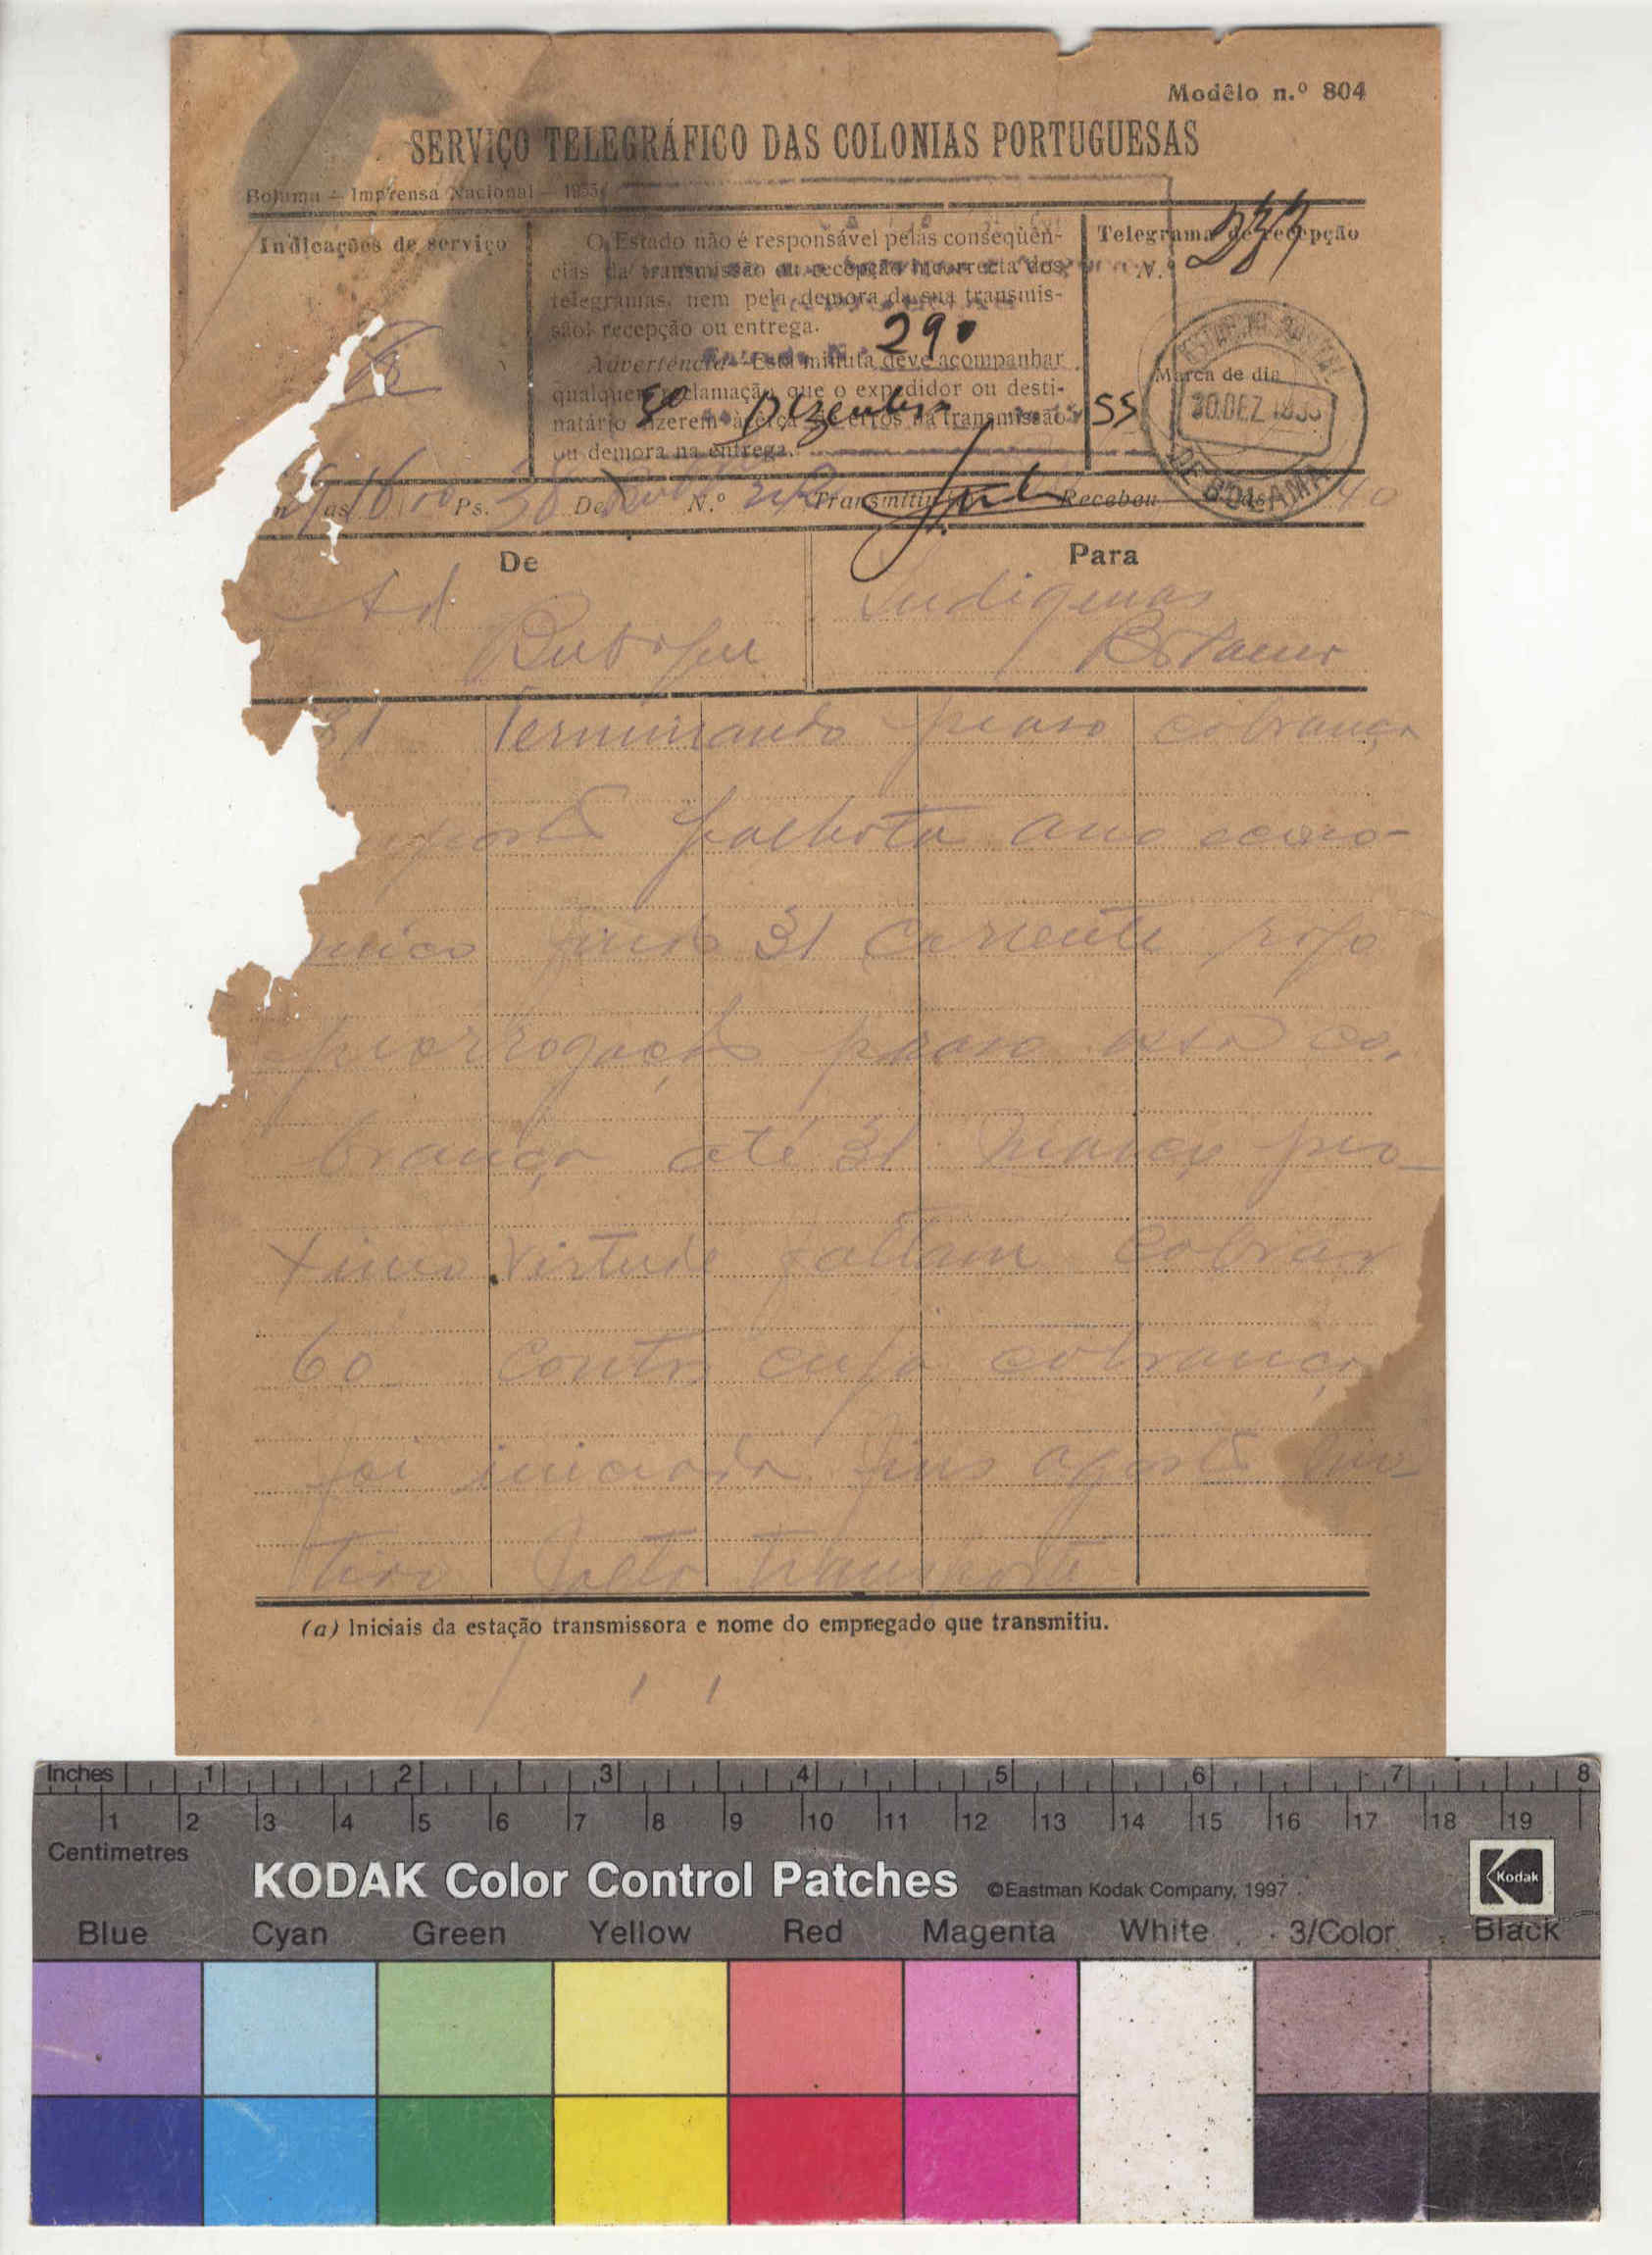 Modêlo n.º 804
SERVIÇO TELEGRÁFICO DAS COLONIAS PORTUGUESAS
Bolama — Imprensa Nacional — 1935
Indicações de serviço
O Estado não é responsável pelas conseqüên-
cias da transmissão ou recepção incorrecta dos
telegramas, nem pela demora da sua transmis-
são, recepção ou entrega.
290
Advertência—Esta minuta deve acompanhar
qualquer reclamação que o expedidor ou desti-
natário fizerem àcêrca de erros na transmissão
ou demora na entrega.
30 Dezembro 35
Telegrama de recepção
N.º
Marca de dia
30.DEZ.1935
DE BOLAMA
às 16 Ps. 38 De N.º Transmitiu Recebeu às 40
De
Para
Ad
Indigenas
31 Terminando praso cobrança
palhota ano econo-
mico findo 31 corrente rogo
prorrogação praso essa co-
brança até 31 março pro-
ximo virtude faltam cobrar
60 contos cuja cobrança
foi iniciada fins agosto mo-
tivo falta transporte
(a) Iniciais da estação transmissora e nome do empregado que transmitiu.
Inches 1 2 3 4 5 6 7 8
1 2 3 4 5 6 7 8 9 10 11 12 13 14 15 16 17 18 19
Centimetres
KODAK Color Control Patches ©Eastman Kodak Company, 1997
Kodak
Blue Cyan Green Yellow Red Magenta White 3/Color Black